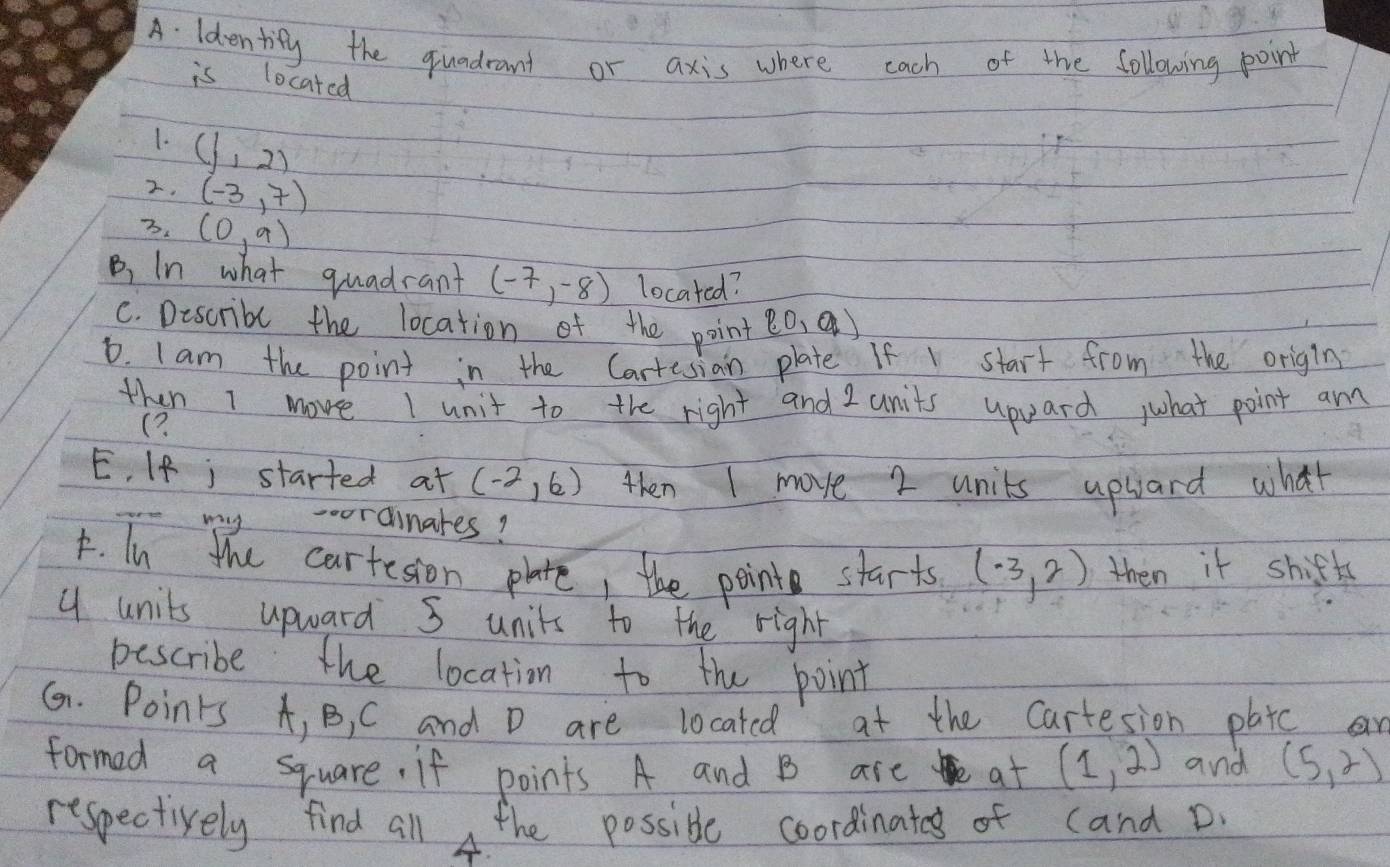 A. Identify the quadrant or axis where each of the following point
is located
1. (1, 2)
2. (-3, 7)
3. (0, 9)
B, In what quadrant (-7, -8) located?
C. Describe the location of the point (0, 9)
D. I am the point in the Cartesian plate If I start from the origin
then I move 1 unit to the right and 2 units upward, what point am
I?
E. If i started at (-2, 6) then I move 2 units upward what
are my coordinates?
F. In the cartesion plate, the point starts (-3, 2) then it shifts
4 units upward 5 units to the right
Describe the location to the point
G. Points A, B, C and D are located at the Cartesion plate an
formed a square. if points A and B are at (1, 2) and (5, 2)
respectively find all the possible coordinates of C and D.